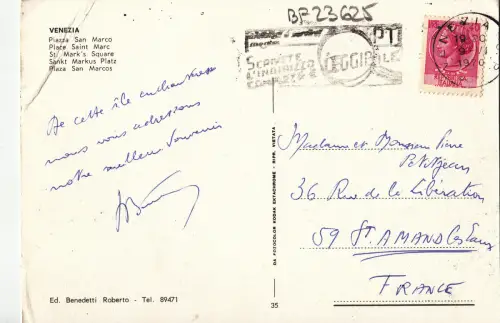 BF 23625
VENEZIA
Piazza San Marco
Place Saint Marc
St. Mark's Square
Sankt Markus Platz
Plaza San Marcos
SCRIVETE
L'INDIRIZZO
LEGGIBILE
PT
VENEZIA
De cette île enchanteresse
nous vous adressons
notre meilleur souvenir
Madame et Monsieur Pierre
Petitjean
36 Rue de la Libération
59 St. AMAND les Eaux
FRANCE
DA FOTOCOLOR KODAK EKTACHROME - RIPR. VIETATA
Ed. Benedetti Roberto - Tel. 89471
35